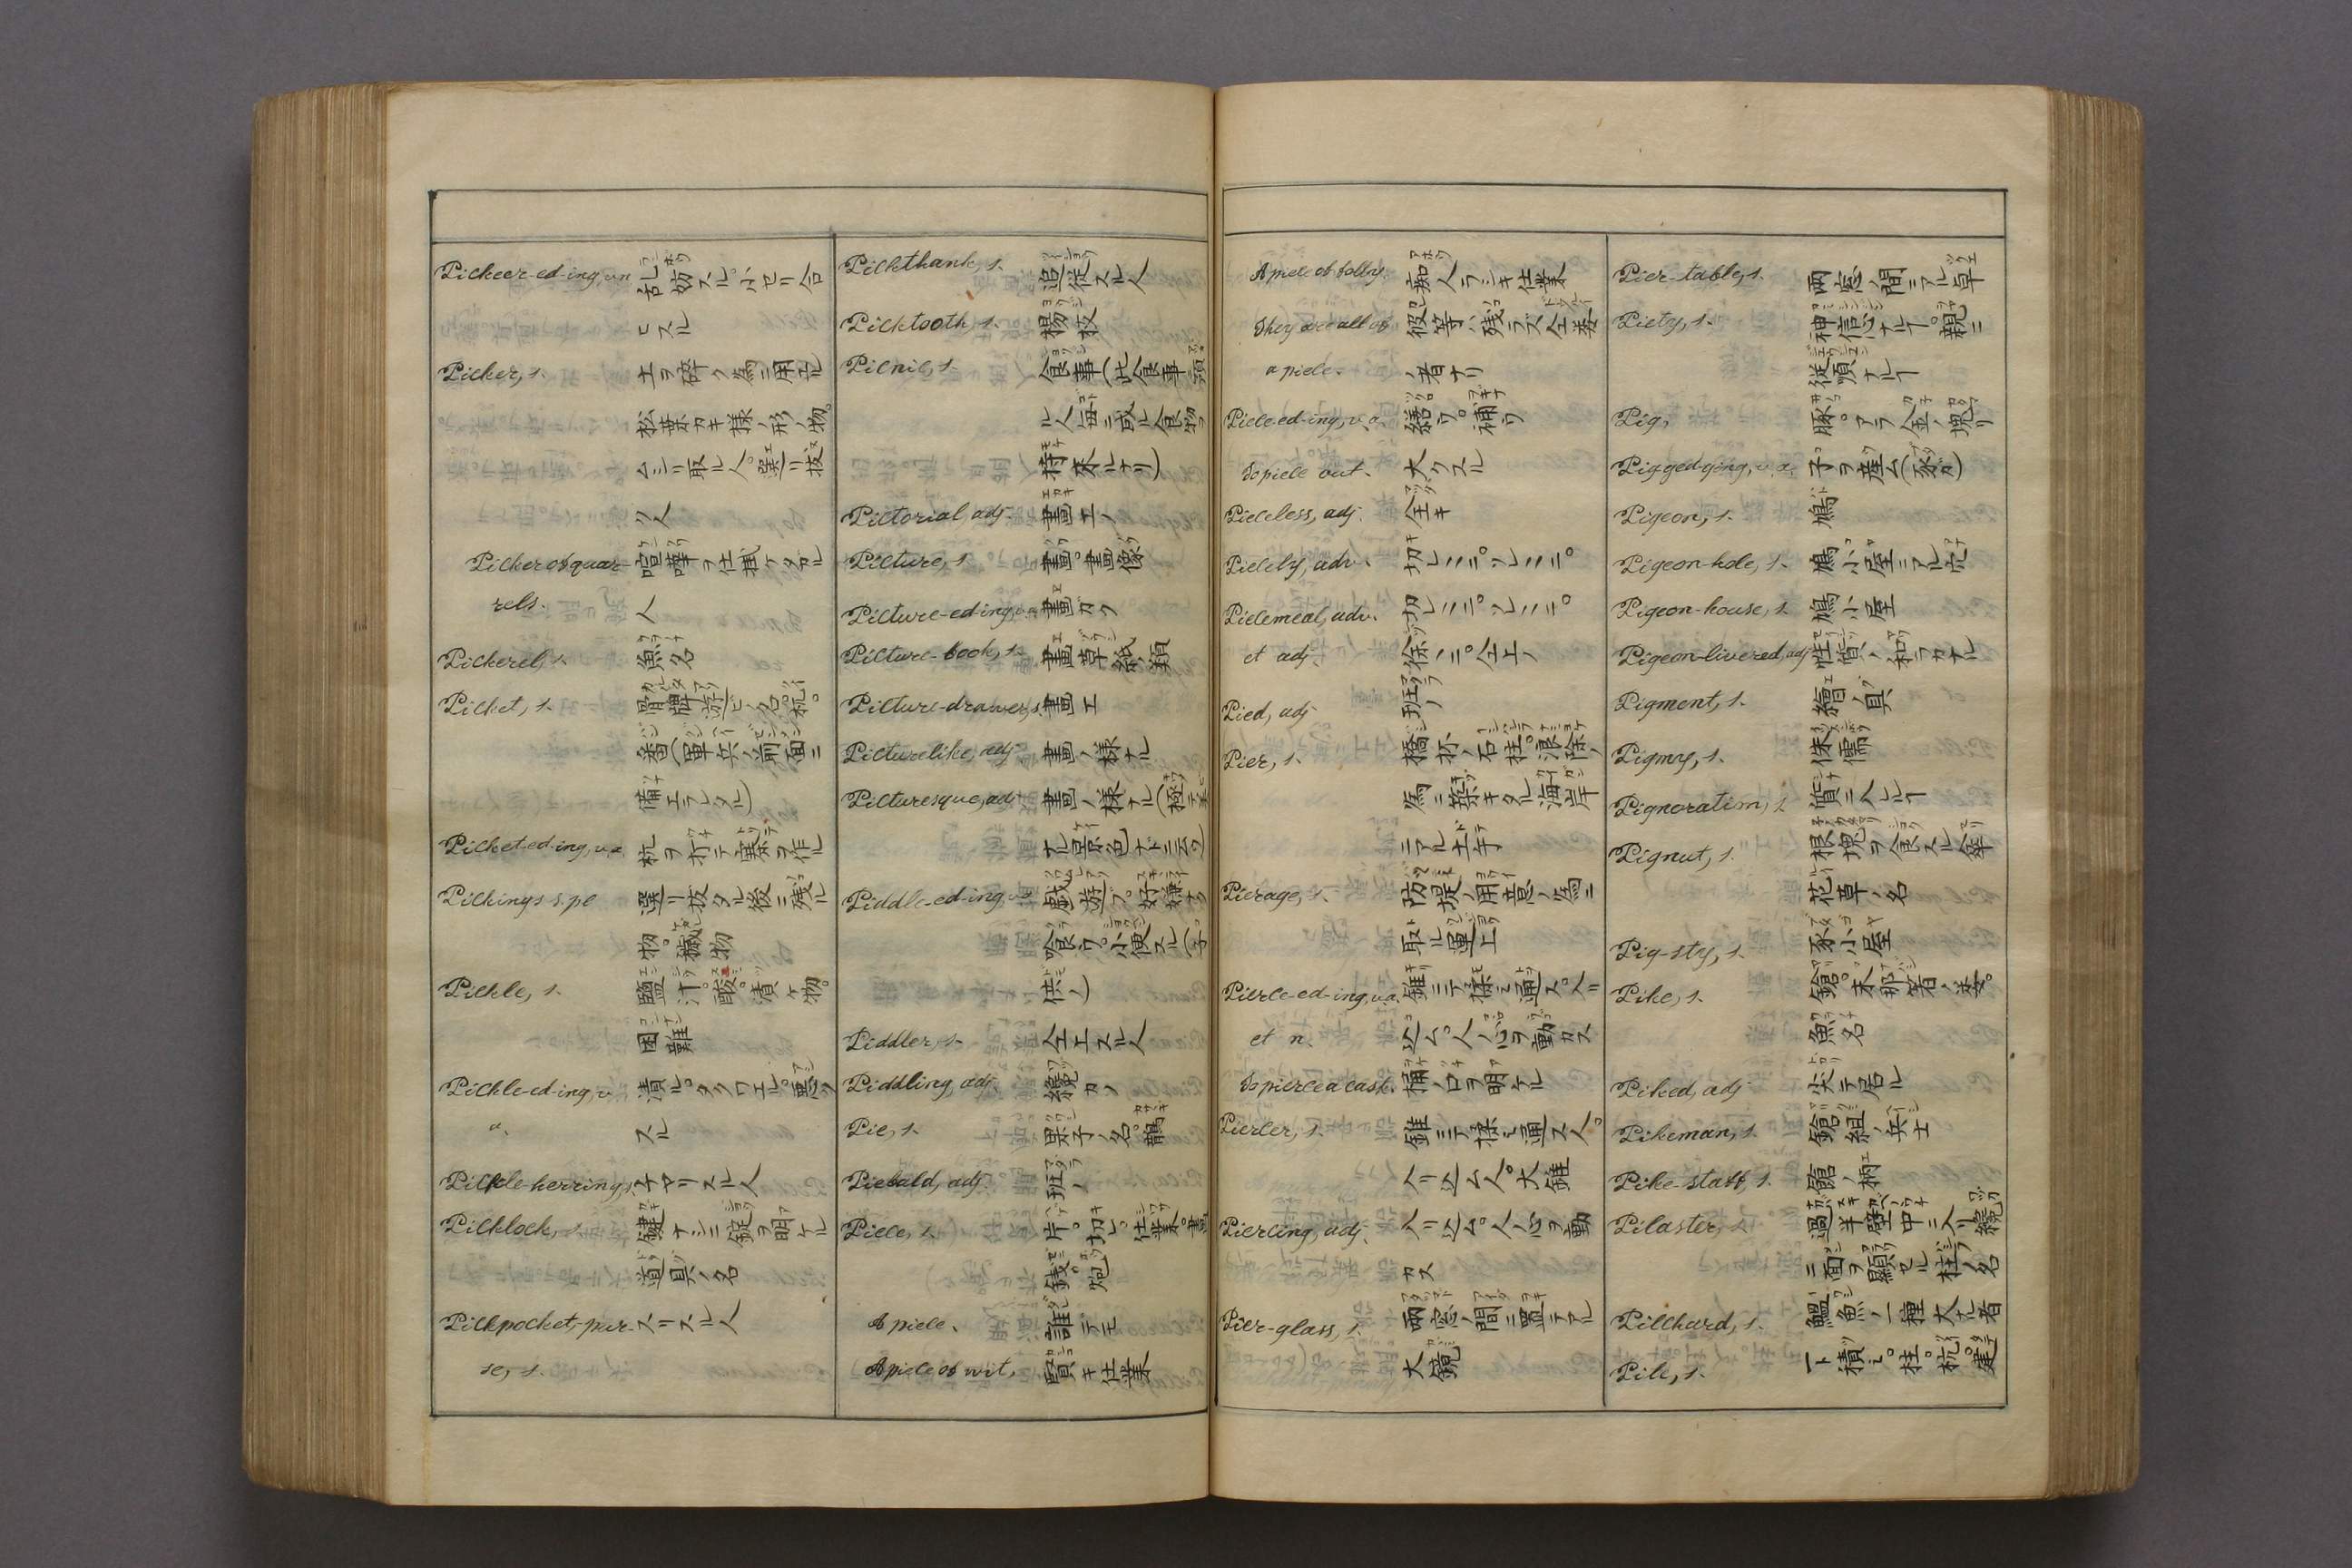 Pickeer-ed-ing, vn 乱妨スル。小セリ合
ヒスル
Picker, s. 土ヲ碎ク為ニ用ル
松葉カキ様ノ形ノ物。
ムシリ取ル人。選リ抜
ク人
Picker of quar- 喧嘩ヲ仕掛ケタル
rels. 人
Pickerel, s. 魚名
Picket, s. 骨牌遊ビノ名。杭。
番(軍兵ノ前面ニ
備エラレタル)
Picket-ed-ing, v.a. 杭ヲ打テ寨ヲ作ル
Pickings s.pe 選リ抜タル後ニ残ル
物。穢物
Pickle, s. 鹽汁。酸。漬ケ物。
困難
Pickle-ed-ing, v. 漬ル。タクワエル。悪クリ
a. スル
Pickle-herring, s. チヤリスル人
Picklock, s. 鍵ナシニ錠ヲ明ケル
道具ノ名
Pickpocket,-pur- スリスル人
se, s.
Pickthank, s. 追従スル人
Picktooth, s. 楊枝
Picnic, s. 食事(此食事ニ預
ル人毎ニ或ル食物ヲ
持来ルナリ)
Pictorial, adj. 畫工ノ
Picture, s. 畫。畫像
Picture-ed-ing, v.a. 畫ガク
Picture-book, s. 畫草紙ノ類
Picture-drawer, s. 畫工
Picturelike, adj. 畫ノ様ナル
Picturesque, adj. 畫ノ様ナル(極テ美
ナル景色ナドニ云フ)
Piddle-ed-ing, vn 戯遊ブ。好嫌ヲ
喰ウ。小便スル(子
供ノ)
Piddler, s. 仝上スル人
Piddling, adj. 纔カノ
Pie, s. 果子ノ名。鵲
Piebald, adj. 班ノ
Piece, s. 片。切レ。仕業。畫
銭。炮
A piece. 誰ニテモ
A piece of wit. 賢キ仕業
A piece of folly. 痴人ラシキ仕業
They are all of 彼等ハ残ラズ仝
a piece. ノ者ナリ
Piece-ed-ing, v.a. 繕ウ。補ウ
To piece out. 大クスル
Pieceless, adj. 全キ
Piecely, adv. 切レ〻ニ。ソレ〻ニ。
Piecemeal, adv. 切レ〻ニ。ソレ〻ニ。
et adj. 徐〻ニ。仝上ノ
Pied, adj 班ノ
Pier, s. 橋杯ノ石柱。浪除ノ
為ニ築キタル海岸
ニアル土手
Pierage, s. 防堤ノ用意ノ為ニ
取ル運上
Pierce-ed-ing, v.a. 錐ニテ揉ミ通ス。入リ
et n. 込ム。人ノ心ヲ動カス
To pierce a cask. 桶ノ口ヲ明ケル
Piercer, s. 錐ニテ揉ミ通ス人。
入リ込ム人。大錐
Piercing, adj. 入リ込ム。人ノ心ヲ動
カス
Pier-glass, s. 両窓ノ間ニ置キテアル
大鏡
Pier-table, s. 両窓ノ間ニアル卓
Piety, s. 神信心ナルヿ。親ニ
従順ナルヿ
Pig, 豚。アラ金ノ塊リ
Pig-ged-ging, v.a. 子ヲ産ム(豕ガ)
Pigeon, s. 鳩
Pigeon-hole, s. 鳩小屋ニアル穴
Pigeon-house, s. 鳩小屋
Pigeon-livered, adj 性質ノ和ラカナル
Pigment, s. 繪ノ具
Pigmy, s. 侏儒
Pignoration, s. 質ニ入ルヿ
Pignut, s. 根塊ヲ食スル傘
花草ノ名
Pig-sty, s. 豕小屋
Pike, s. 鎗。
魚名
Piked, adj 尖テ居ル
Pikeman, s. 鎗組ノ兵士
Pike-staff, s. 鎗ノ柄
Pilaster, s. 過半壁中ニ入リ纔
ニ面ヲ顕セル柱ノ名
Pilchard, s. 鰮魚ノ一種大ナル者
Pile, s. 一ト積ミ。柱。杭。建